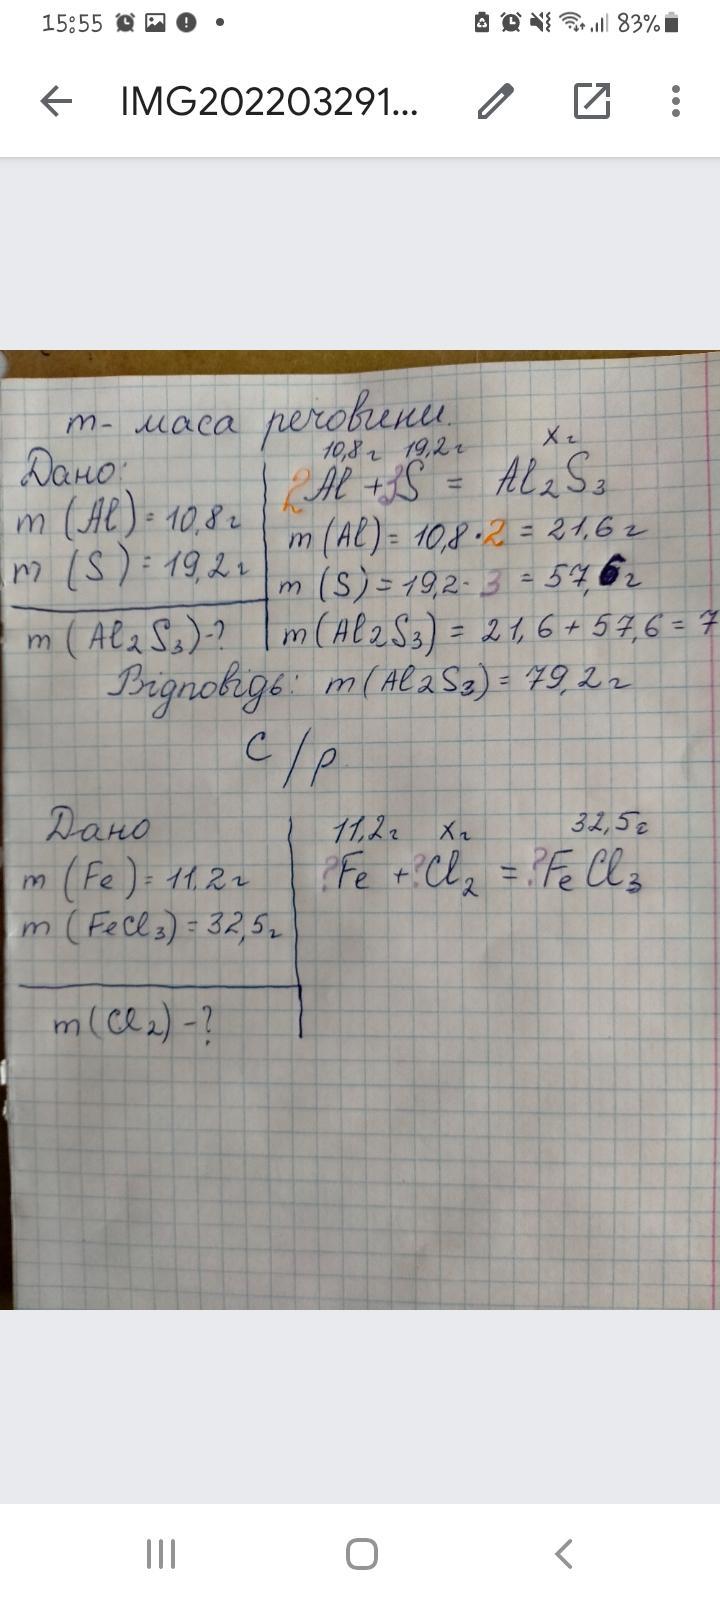 15:55 83%
IMG202203291...
m - маса речовини.
Дано:
m (Al) = 10,8 г
m (S) = 19,2 г
m (Al2S3) - ?
10,8 г 19,2 г x г
2Al + 3S = Al2S3
m (Al) = 10,8 · 2 = 21,6 г
m (S) = 19,2 · 3 = 57,6 г
m (Al2S3) = 21,6 + 57,6 = 7
Відповідь: m (Al2S3) = 79,2 г
С/р
Дано
m (Fe) = 11,2 г
m (FeCl3) = 32,5 г
m (Cl2) - ?
11,2 г x г 32,5 г
?Fe + ?Cl2 = ?FeCl3